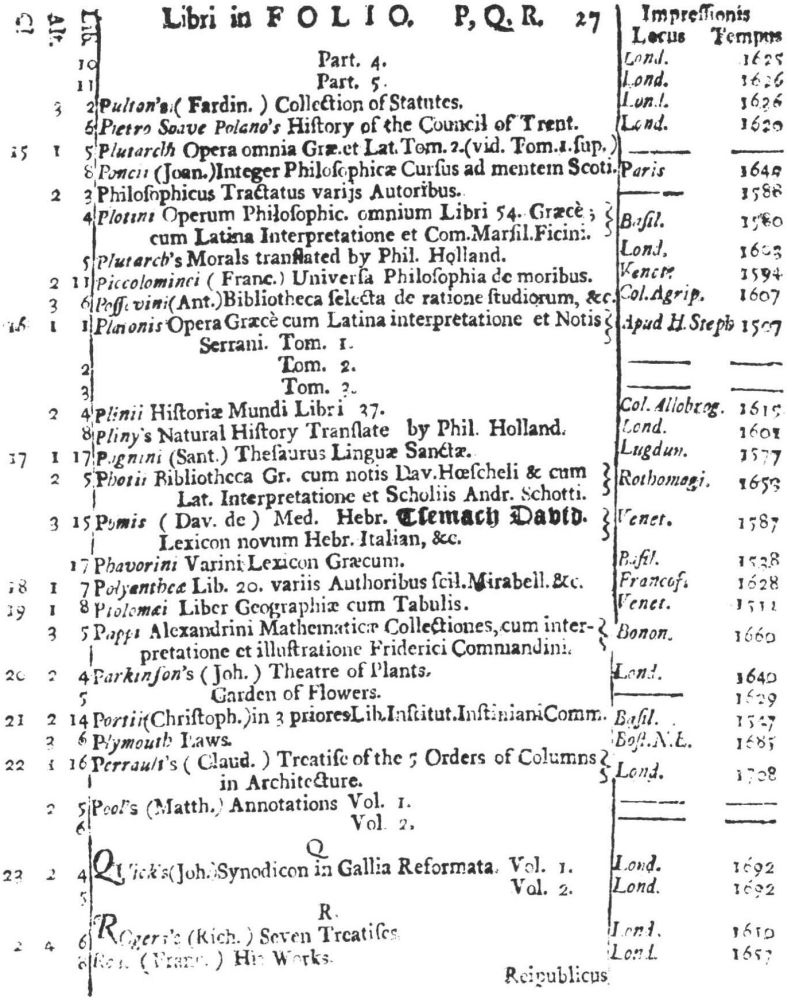 Cl. Alt. Lib. Libri in FOLIO. P, Q. R. 27 Impreſſionis
Locus Tempus
10 Part. 4. Lond. 1625
11 Part. 5. Lond. 1626
3 2 Pulton's ( Fardin. ) Collection of Statutes. Lond. 1636
6 Pietro Soave Polano's Hiſtory of the Council of Trent. Lond. 1620
15 1 5 Plutarchi Opera omnia Græ.et Lat. Tom. 2.(vid. Tom. 1. ſup.)
8 Poncii (Joan.) Integer Philoſophicæ Curſus ad mentem Scoti. Paris 1649
2 3 Philoſophicus Tractatus varijs Autoribus. 1588
4 Plotini Operum Philoſophic. omnium Libri 54. Græcè ;
cum Latina Interpretatione et Com. Marſil. Ficini. Baſil. 1580
5 Plutarch's Morals tranſlated by Phil. Holland. Lond. 1603
2 11 Piccolominei ( Franc.) Univerſa Philoſophia de moribus. Venet. 1594
3 6 Poſſevini (Ant.) Bibliotheca ſelecta de ratione ſtudiorum, &c. Col. Agrip. 1607
16 1 1 Platonis Opera Græcè cum Latina interpretatione et Notis Apud H. Steph
Serrani. Tom. 1.
2 Tom. 2.
3 Tom. 3.
2 4 Plinii Hiſtoriæ Mundi Libri 37. Col. Allobrog. 1615
8 Pliny's Natural Hiſtory Tranſlate by Phil. Holland. Lond. 1601
17 1 17 Pagnini (Sant.) Theſaurus Linguæ Sanctæ. Lugdun. 1577
2 5 Photii Bibliotheca Gr. cum notis Dav. Hœſcheli & cum
Lat. Interpretatione et Scholiis Andr. Schotti. Rothomagi. 1653
3 15 Pomis ( Dav. de ) Med. Hebr. Tſemach David. Venet. 1587
Lexicon novum Hebr. Italian, &c.
17 Phavorini Varini Lexicon Græcum. Baſil. 1538
18 1 7 Polyantheæ Lib. 20. variis Authoribus ſcil. Mirabell. &c. Francof. 1628
19 1 8 Ptolomæi Liber Geographiæ cum Tabulis. Venet. 1511
3 5 Pappi Alexandrini Mathematicæ Collectiones, cum inter-
pretatione et illuſtratione Friderici Commandini. Bonon. 1660
20 2 4 Parkinſon's ( Joh. ) Theatre of Plants. Lond. 1640
5 Garden of Flowers. 1629
21 2 14 Portii (Chriſtoph.) in 3 priores Lib. Inſtitut. Inſtiniani Comm. Baſil.
3 6 Plymouth Laws. Boſt. N.E. 1685
22 1 16 Perrault's ( Claud. ) Treatiſe of the 5 Orders of Columns
in Architecture. Lond. 1708
2 5 Pool's (Matth.) Annotations Vol. 1.
6 Vol. 2.
Q
23 2 4 QUick's (Joh.) Synodicon in Gallia Reformata. Vol. 1. Lond. 1692
5 Vol. 2. Lond. 1692
R.
2 4 6 ROgers's (Rich. ) Seven Treatiſes Lond. 1610
8 ( Franc. ) His Works. Lond. 1657
Reipublicus